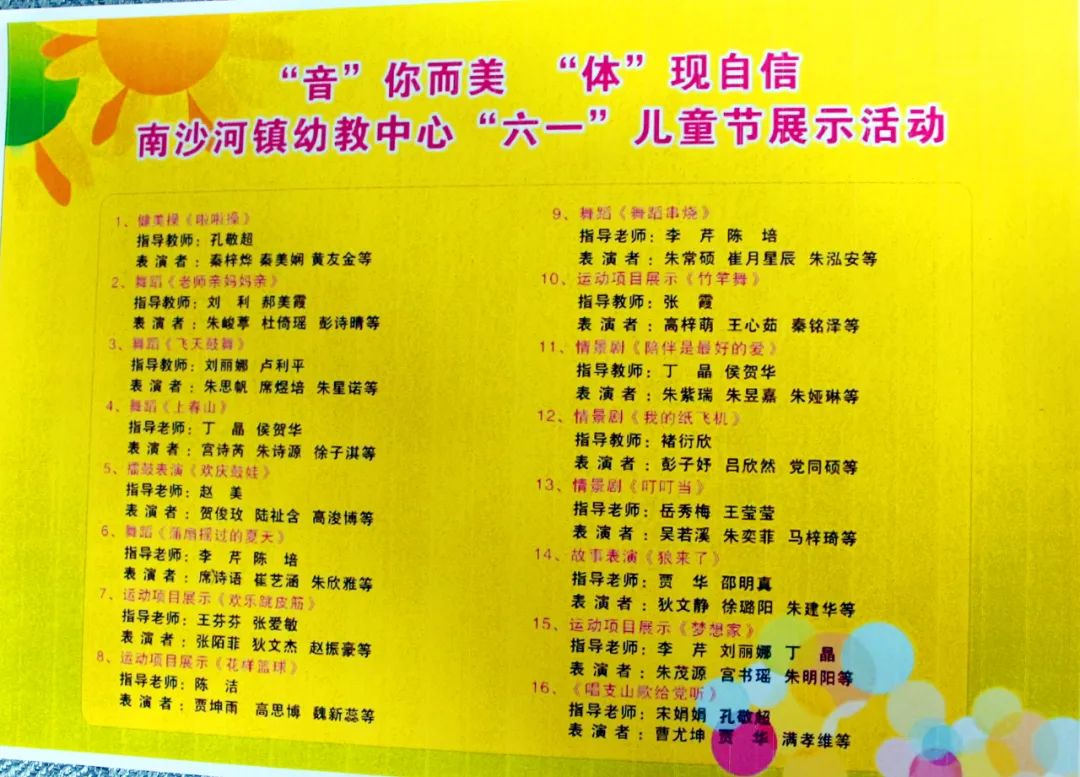 “音”你而美 “体”现自信
南沙河镇幼教中心“六一”儿童节展示活动
1、健美操《啦啦操》
指导教师：孔敬超
表 演 者：秦梓烨 秦美娴 黄友金等
2、舞蹈《老师亲妈妈亲》
指导教师：刘 利 郝美霞
表 演 者：朱峻葶 杜倚瑶 彭诗晴等
3、舞蹈《飞天鼓舞》
指导教师：刘丽娜 卢利平
表 演 者：朱思帆 席煜培 朱星诺等
4、舞蹈《上春山》
指导老师：丁 晶 侯贺华
表 演 者：宫诗芮 朱诗源 徐子淇等
5、擂鼓表演《欢庆鼓娃》
指导老师：赵 美
表 演 者：贺俊玫 陆祉含 高浚博等
6、舞蹈《蒲扇摇过的夏天》
指导老师：李 芹 陈 培
表 演 者：席诗语 崔艺涵 朱欣雅等
7、运动项目展示《欢乐跳皮筋》
指导老师：王芬芬 张爱敏
表 演 者：张陌菲 狄文杰 赵振豪等
8、运动项目展示《花样篮球》
指导老师：陈 洁
表 演 者：贾坤雨 高思博 魏新蕊等
9、舞蹈《舞蹈串烧》
指导老师：李 芹 陈 培
表 演 者：朱常硕 崔月星辰 朱泓安等
10、运动项目展示《竹竿舞》
指导教师：张 霞
表 演 者：高梓萌 王心茹 秦铭泽等
11、情景剧《陪伴是最好的爱》
指导教师：丁 晶 侯贺华
表 演 者：朱紫瑞 朱昱嘉 朱娅琳等
12、情景剧《我的纸飞机》
指导教师：褚衍欣
表 演 者：彭子妤 吕欣然 党同硕等
13、情景剧《叮叮当》
指导老师：岳秀梅 王莹莹
表 演 者：吴若溪 朱奕菲 马梓琦等
14、故事表演《狼来了》
指导老师：贾 华 邵明真
表 演 者：狄文静 徐璐阳 朱建华等
15、运动项目展示《梦想家》
指导老师：李 芹 刘丽娜 丁 晶
表 演 者：朱茂源 宫书瑶 朱明阳等
16、《唱支山歌给党听》
指导老师：宋娟娟 孔敬超
表 演 者：曹尤坤 贾 华 满孝维等